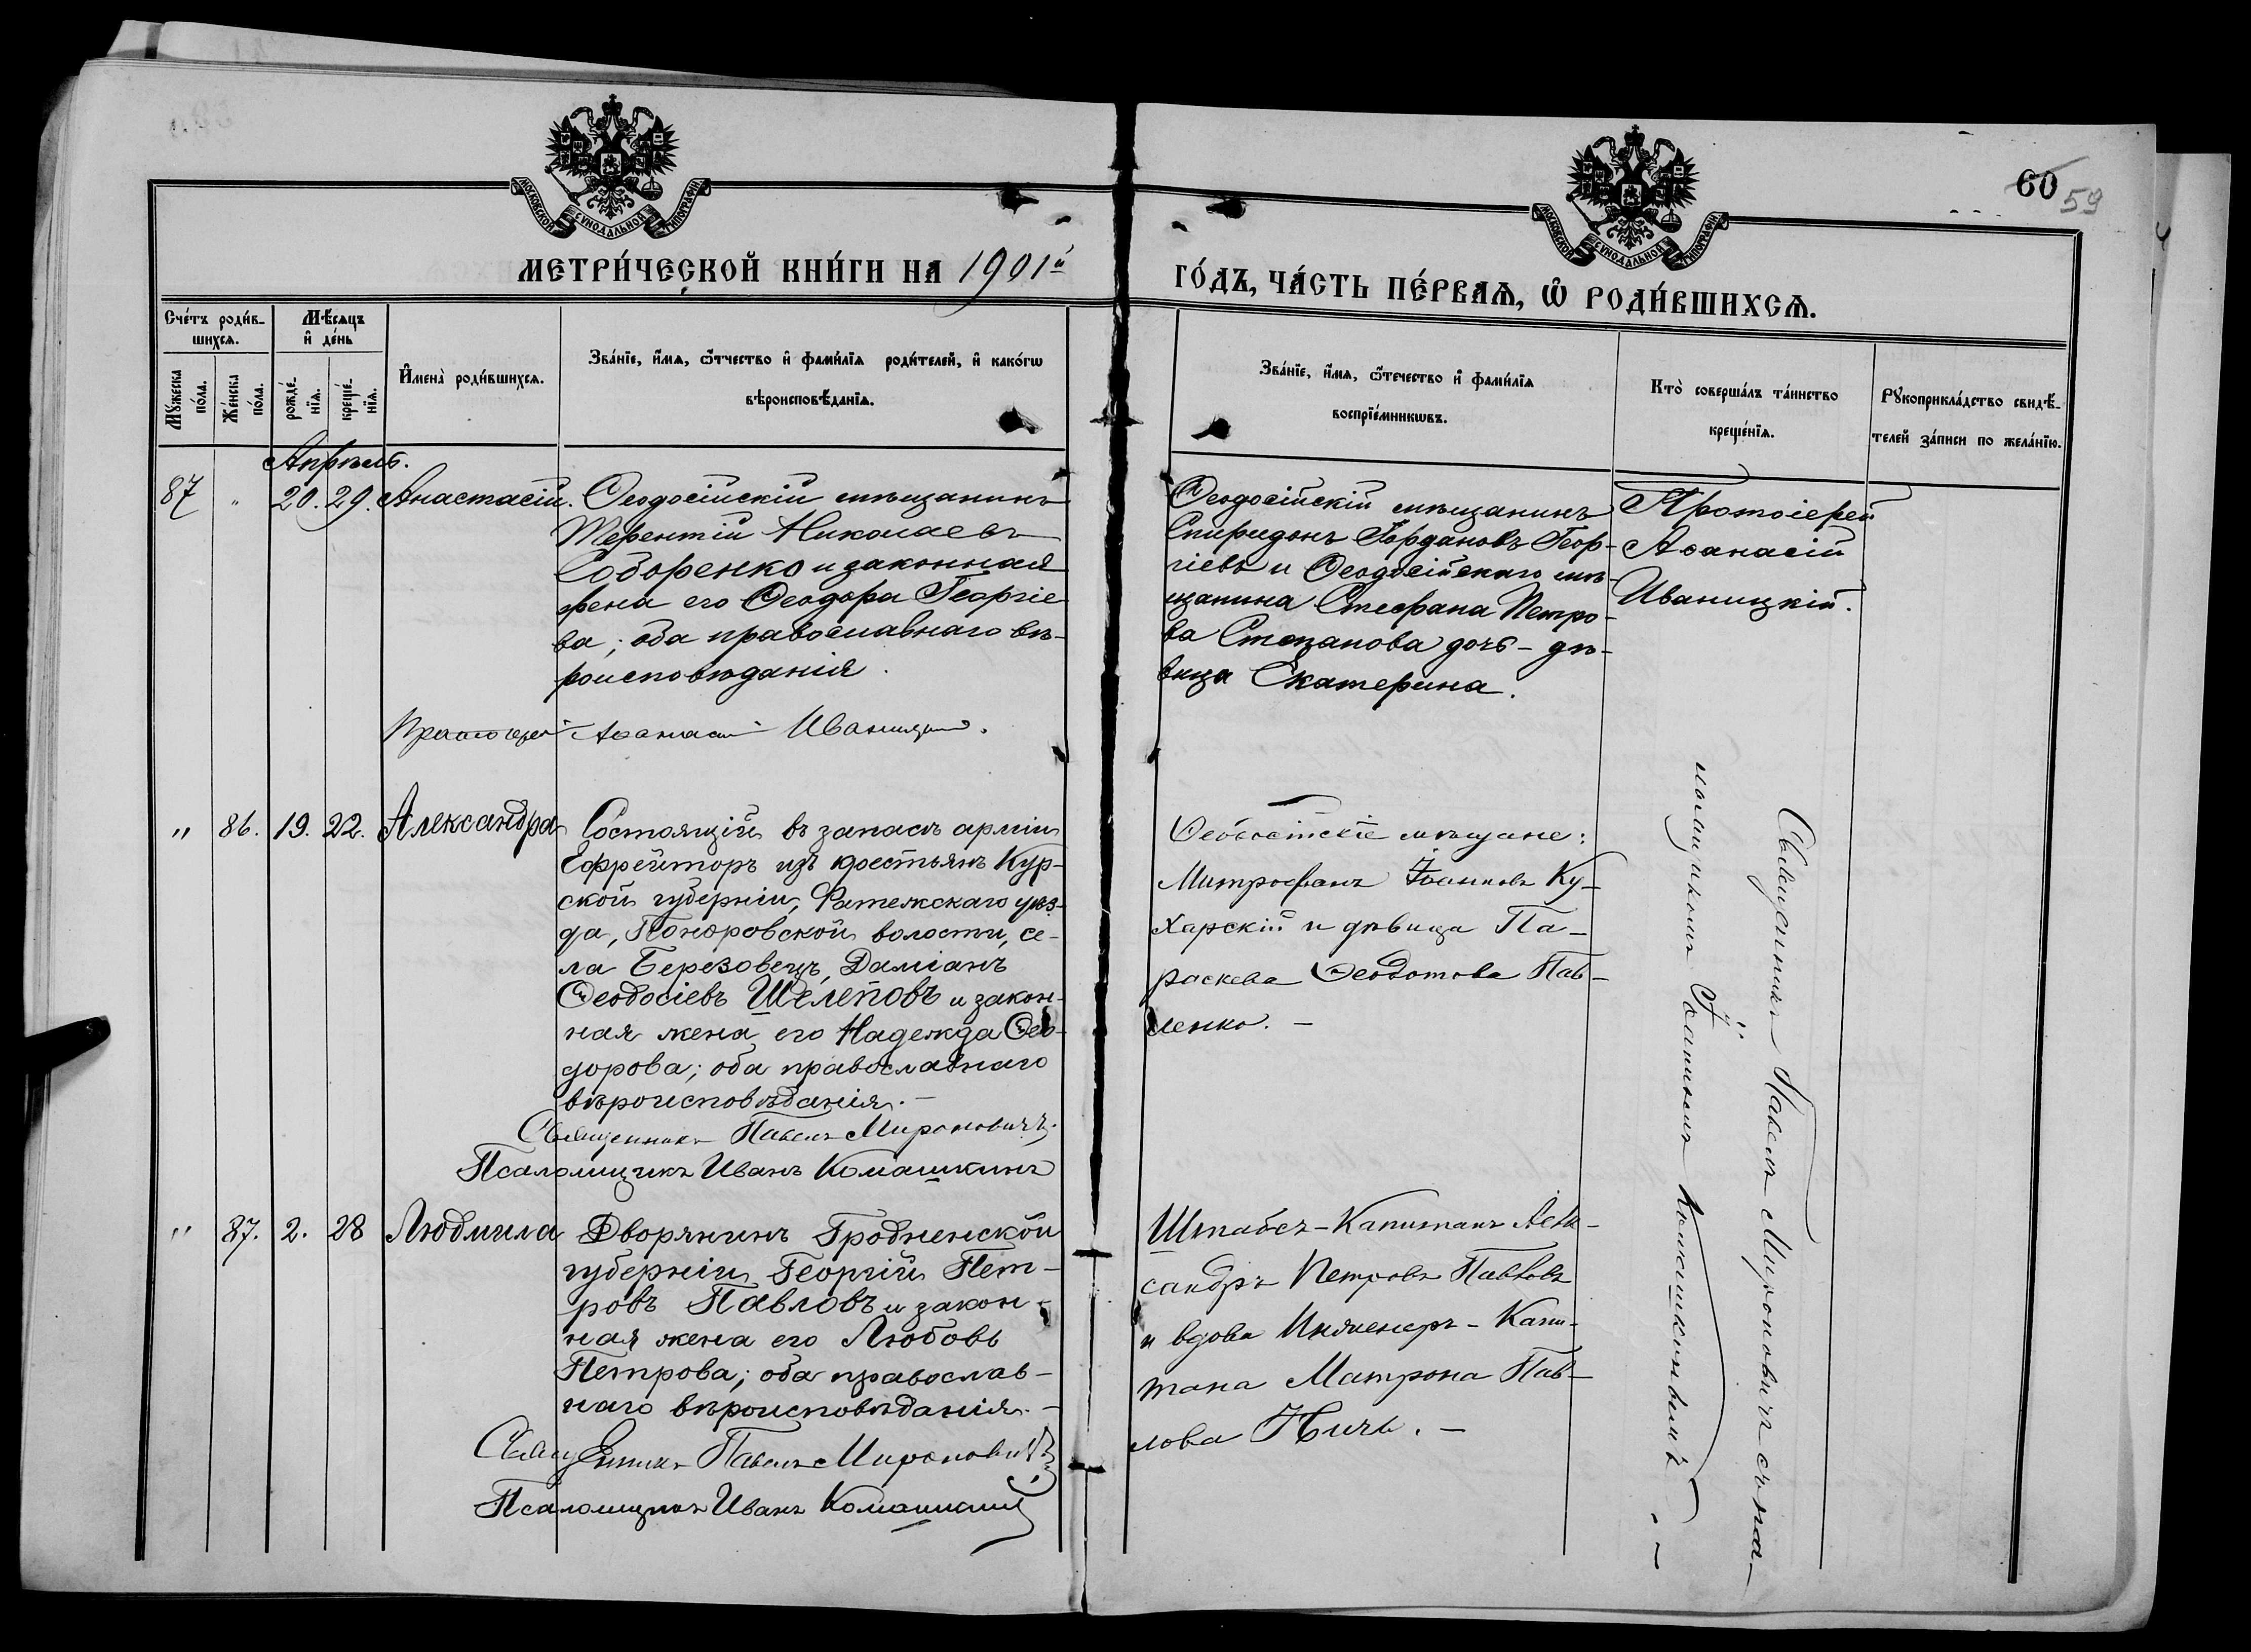 МОСКОВСКОЙ СѴНОДАЛЬНОЙ ТИПОГРАФІИ
МОСКОВСКОЙ СѴНОДАЛЬНОЙ ТИПОГРАФІИ
60 59
МЕТРИ́ЧЕСКОЙ КНИ́ГИ НА 1901й
ГО́ДЪ, ЧА́СТЬ ПЕ́РВАѦ, Ѡ҆ РОДИ́ВШИХСѦ.
Сче́тъ роди́в-
шихсѧ.
Мꙋ́жеска по́ла.
Же́нска по́ла.
Мѣ́сѧцъ
и҆ де́нь
рожде́-
нїѧ.
креще́-
нїѧ.
И҆мена̀ роди́вшихсѧ.
Зва́нїе, и҆́мѧ, ѻ҆́тчество и҆ фами́лїѧ роди́телей, и҆ како́гѡ
вѣроисповѣ́данїѧ.
Зва́нїе, и҆́мѧ, ѻ҆́течество и҆ фами́лїѧ
воспрїе́мникѡвъ.
Кто̀ соверша́лъ та́инство
креще́нїѧ.
Рꙋкоприкла́дство свидѣ́-
телей за́писи по жела́нїю.
Апрѣль.
87 „ 20. 29. Анастасій.
Ѳеодосійскій мѣщанинъ
Терентій Николаевъ
Соборенко и законная
жена его Ѳеодора Георгіе-
ва; оба православнаго вѣ-
роисповѣданія.
Ѳеодосійскій мѣщанинъ
Спиридонъ Іордановъ Геор-
гіевъ и Ѳеодосійскаго мѣ-
щанина Стефана Петро-
ва Степанова дочь - дѣ-
вица Екатерина.
Протоіерей
Аѳанасій
Иваницкій.
Протоіерей Аѳанасій Иваницкій.
„ 86. 19. 22. Александра
Состоящій въ запасѣ арміи
Ефрейторъ изъ крестьянъ Кур-
ской губерніи, Фатежскаго уѣз-
да, Поныровской волости, се-
ла Березовецъ, Даміанъ
Ѳеодосіевъ Шелеповъ и закон-
ная жена его Надежда Ѳео-
дорова; оба православнаго
вѣроисповѣданія. -
Священникъ Павелъ Мироновичъ.
Псаломщикъ Иванъ Комашкинъ
Ѳеодосійскіе мѣщане:
Митрофанъ Іоанновъ Ку-
харскій и дѣвица Па-
раскева Ѳеодотова Пав-
ленко. -
Священникъ Павелъ Мироновичъ съ пса-
ломщикомъ Іоанномъ Комашкинымъ. -
„ 87. 2. 28 Людмила
Дворянинъ Гродненской
губерніи Георгій Пет-
ровъ Павловъ и закон-
ная жена его Любовь
Петрова; оба православ-
наго вѣроисповѣданія. -
Священникъ Павелъ Мироновичъ
Псаломщикъ Иванъ Комашкинъ
Штабсъ-Капитанъ Алек-
сандръ Петровъ Павловъ
и вдова Инженеръ-Капи-
тана Матрона Пав-
лова